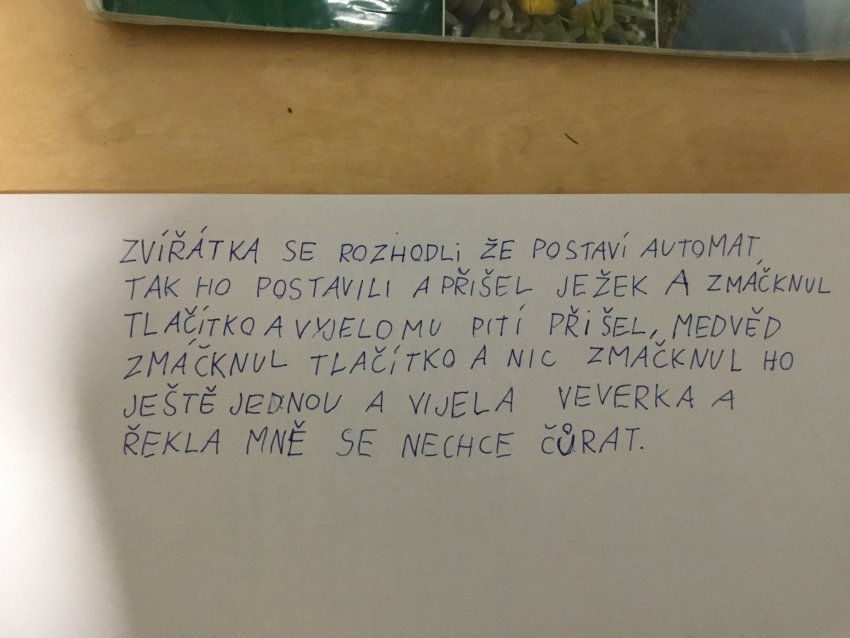 ZVÍŘÁTKA SE ROZHODLI ŽE POSTAVÍ AUTOMAT
TAK HO POSTAVILI A PŘIŠEL JEŽEK A ZMÁČKNUL
TLAČÍTKO A VYJELO MU PITÍ PŘIŠEL, MEDVĚD
ZMÁČKNUL TLAČÍTKO A NIC ZMÁČKNUL HO
JEŠTĚ JEDNOU A VIJELA VEVERKA A
ŘEKLA MNĚ SE NECHCE ČŮRAT.